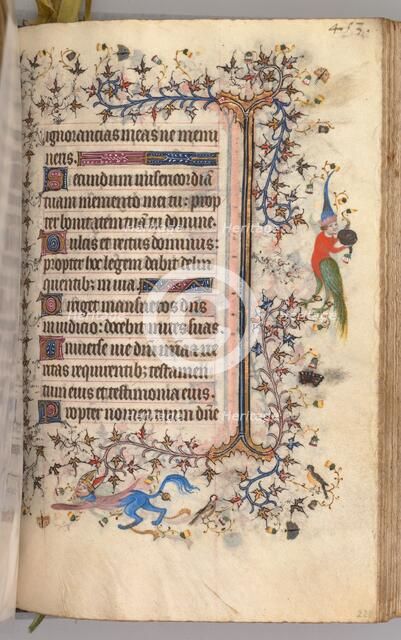 453.
ignorancias meas ne memi
neris
Secundum misericordiã
tuam memento mei tu: prop
ter bonitatem tuam domine.
Dulcis et rectus dominus:
propter hoc legem dabit delin
quentib; in via.
Diriget mansuetos
in iudicio: docebit mites suas.
Universe vie dñi mĩa et ve
ritas requirentib; testamen
tum eius et testimonia eius.
Propter nomen tuum dñe
Heritage
Heritage
Heritage